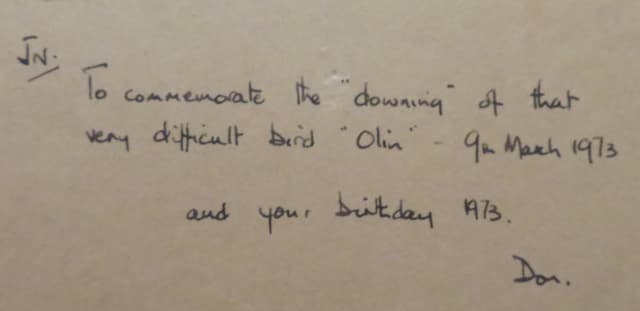 JN.
To commemorate the "downing" of that
very difficult bird "Olin" - 9th March 1973
and your birthday 1973.
Don.